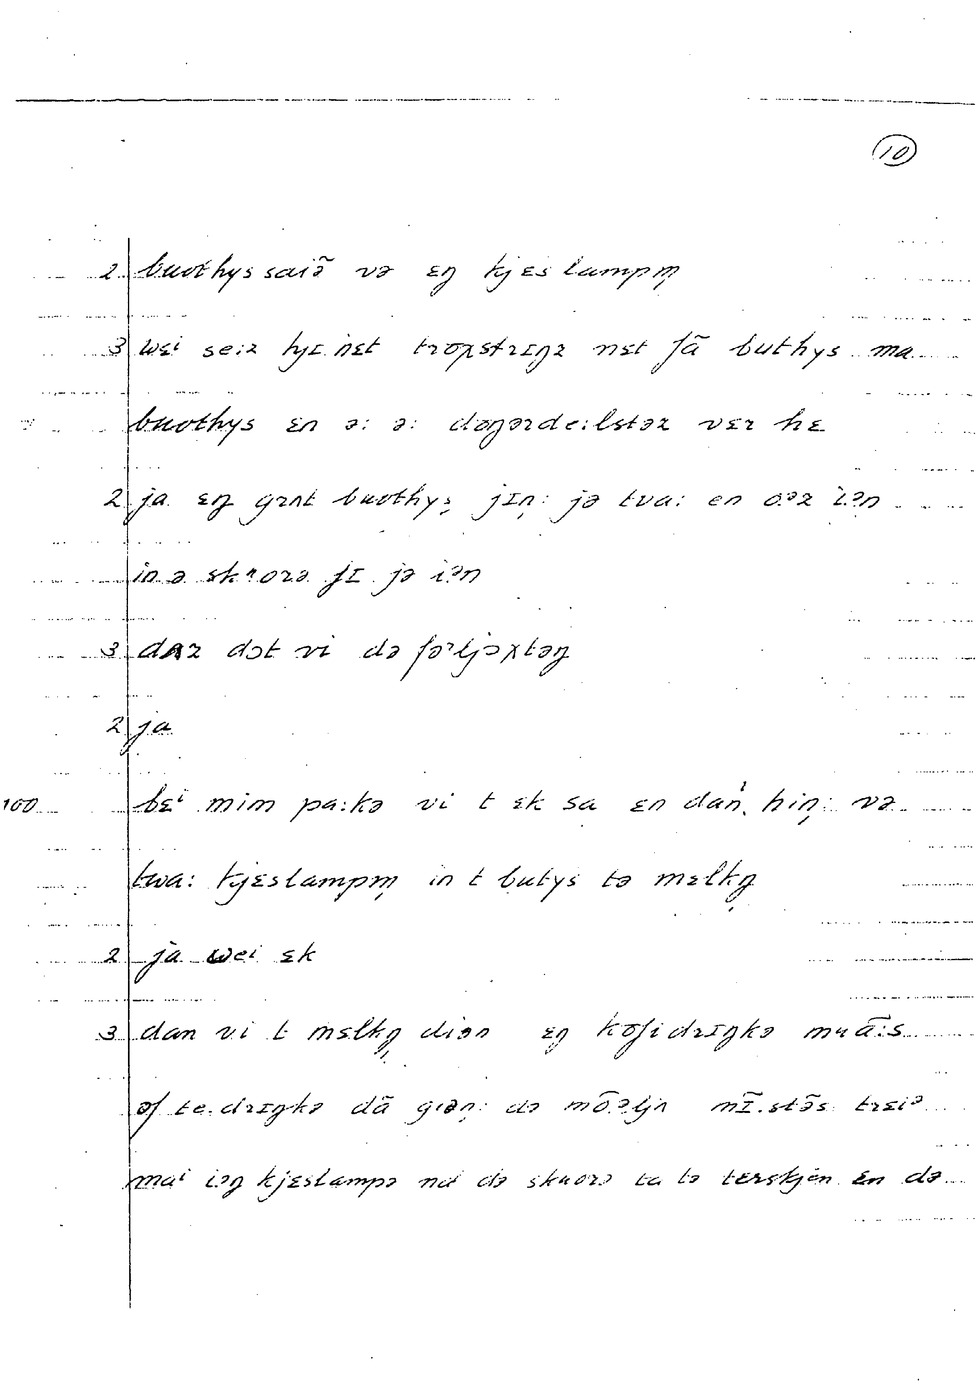 10
2 buothys saiə̃ və ɛŋ kjɛslampm̩
3 wɛi seiz hjɪ nɛt tropstrɪŋz nɛt fã buthys ma
buothys ɛn ə: ə: dəŋərde:lstəz vɛr hɛ
2 ja ɛŋ buothys jɪn̩: jə tva: en iən
in ə skuorə jɪ jə iən
3 daz dət vi də fərljɔχtəŋ
2 ja
100 bɛi mim pa:kə vi t ɛk sa ɛn dan hin̩: və
twa: kjɛslampm̩ in t butys tə mɛlkŋ̩
2 ja wei ɛk
3 dan vi t mɛlkŋ̩ diən ɛŋ kofidrɪŋkə muã:s
of te.drɪŋkə dã giən̩: də mõ.əljn mĩ.stə̃s trɛiə
mai iəŋ kjɛslampə nɑ də skuorə ta tə tɛrskjən ɛn də